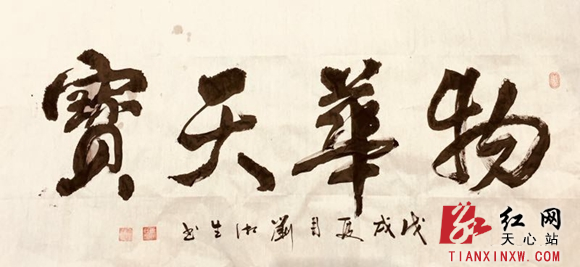 物華天寶
戊戌夏月劉湘生书
红网
天心站
TIANXINXW.COM